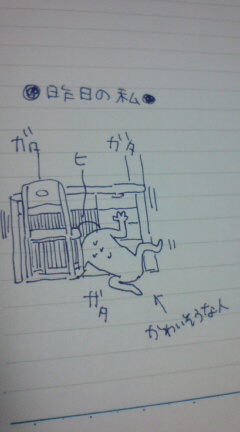 昨日の私
ガタ
ガタ
ヒ
ガタ
かわいそうな人